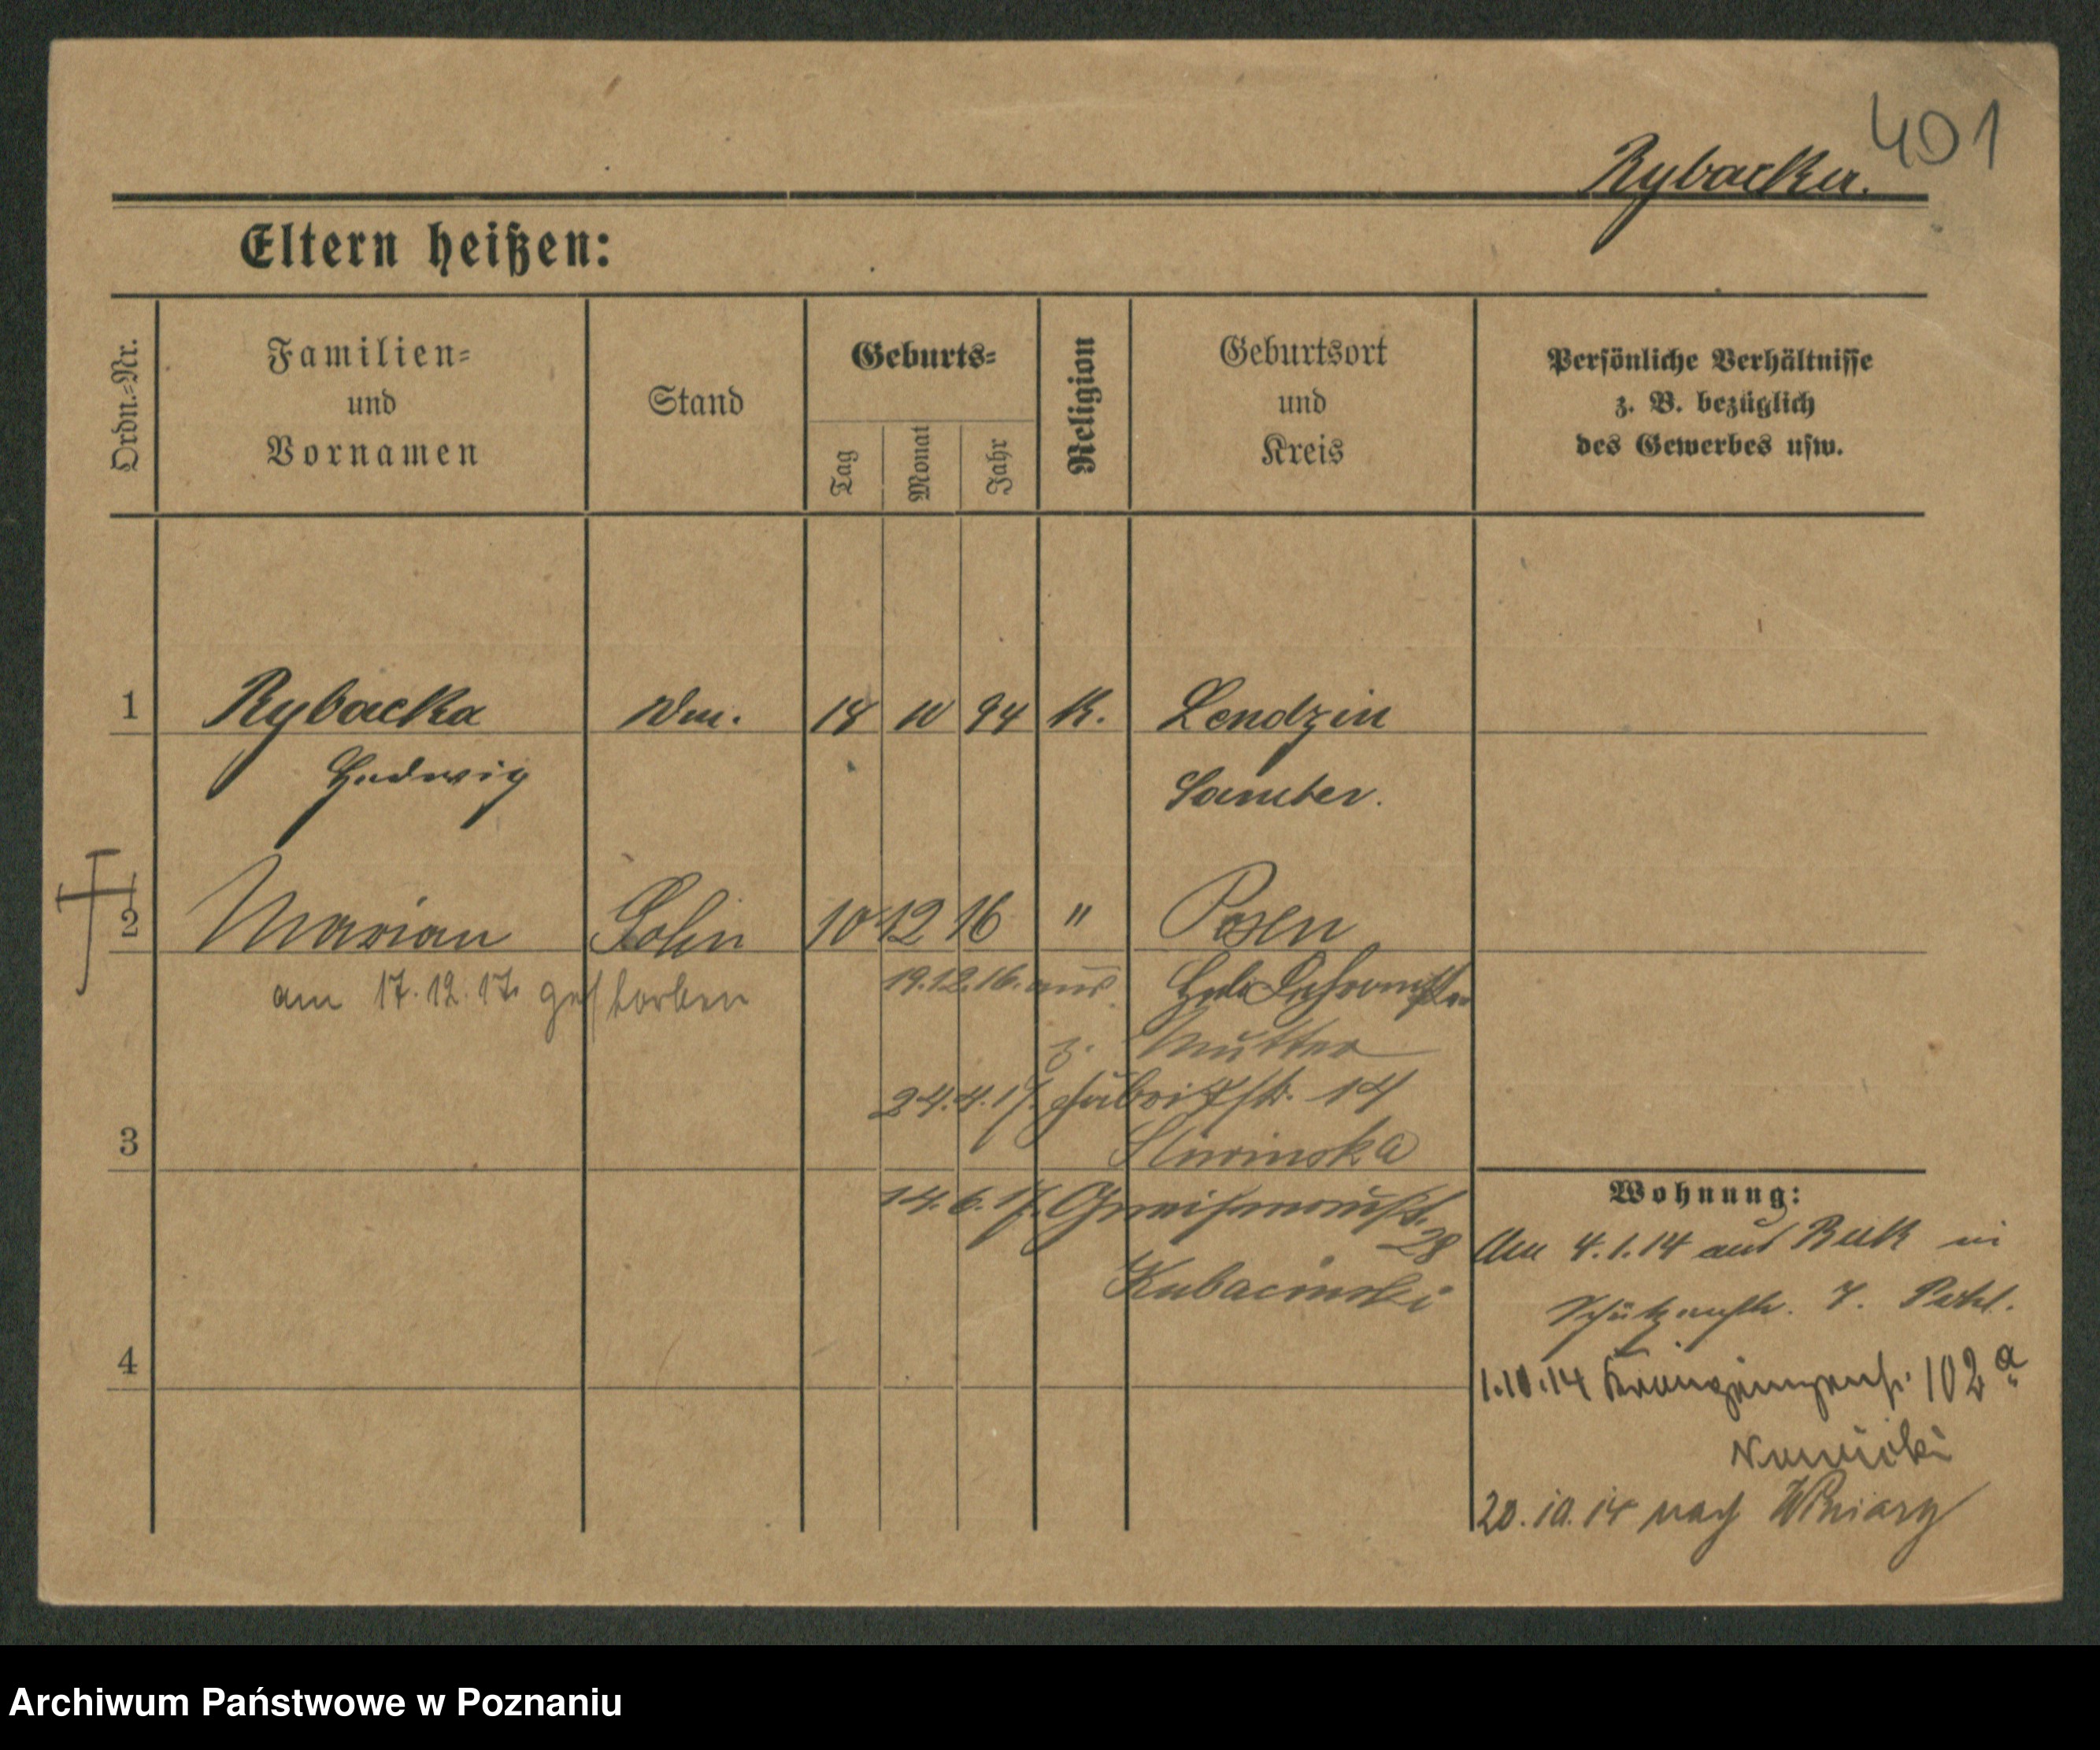 401
Rybacka.
Eltern heißen:
Ordn.-Nr.
Familien-
und
Vornamen
Stand
Geburts-
Tag
Monat
Jahr
Religion
Geburtsort
und
Kreis
Persönliche Verhältnisse
z. B. bezüglich
des Gewerbes usw.
1 Rybacka 18 10 94 K. Lendzin
Hedwig Samter.
2 Marian Sohn 10 12 16 " Posen
am 17.12.17. gestorben 19.12.16. aus
z. Mutter
24.4.17. Fabrikstr. 14
3 Sliwinska
Wohnung:
14.6.17. 28
Am 4.1.14 aus Buk in
Kubacinski
Schützenstr. 7.
4
1.10.14 102 a
Nowicki
20.10.14 nach Winiary
Archiwum Państwowe w Poznaniu